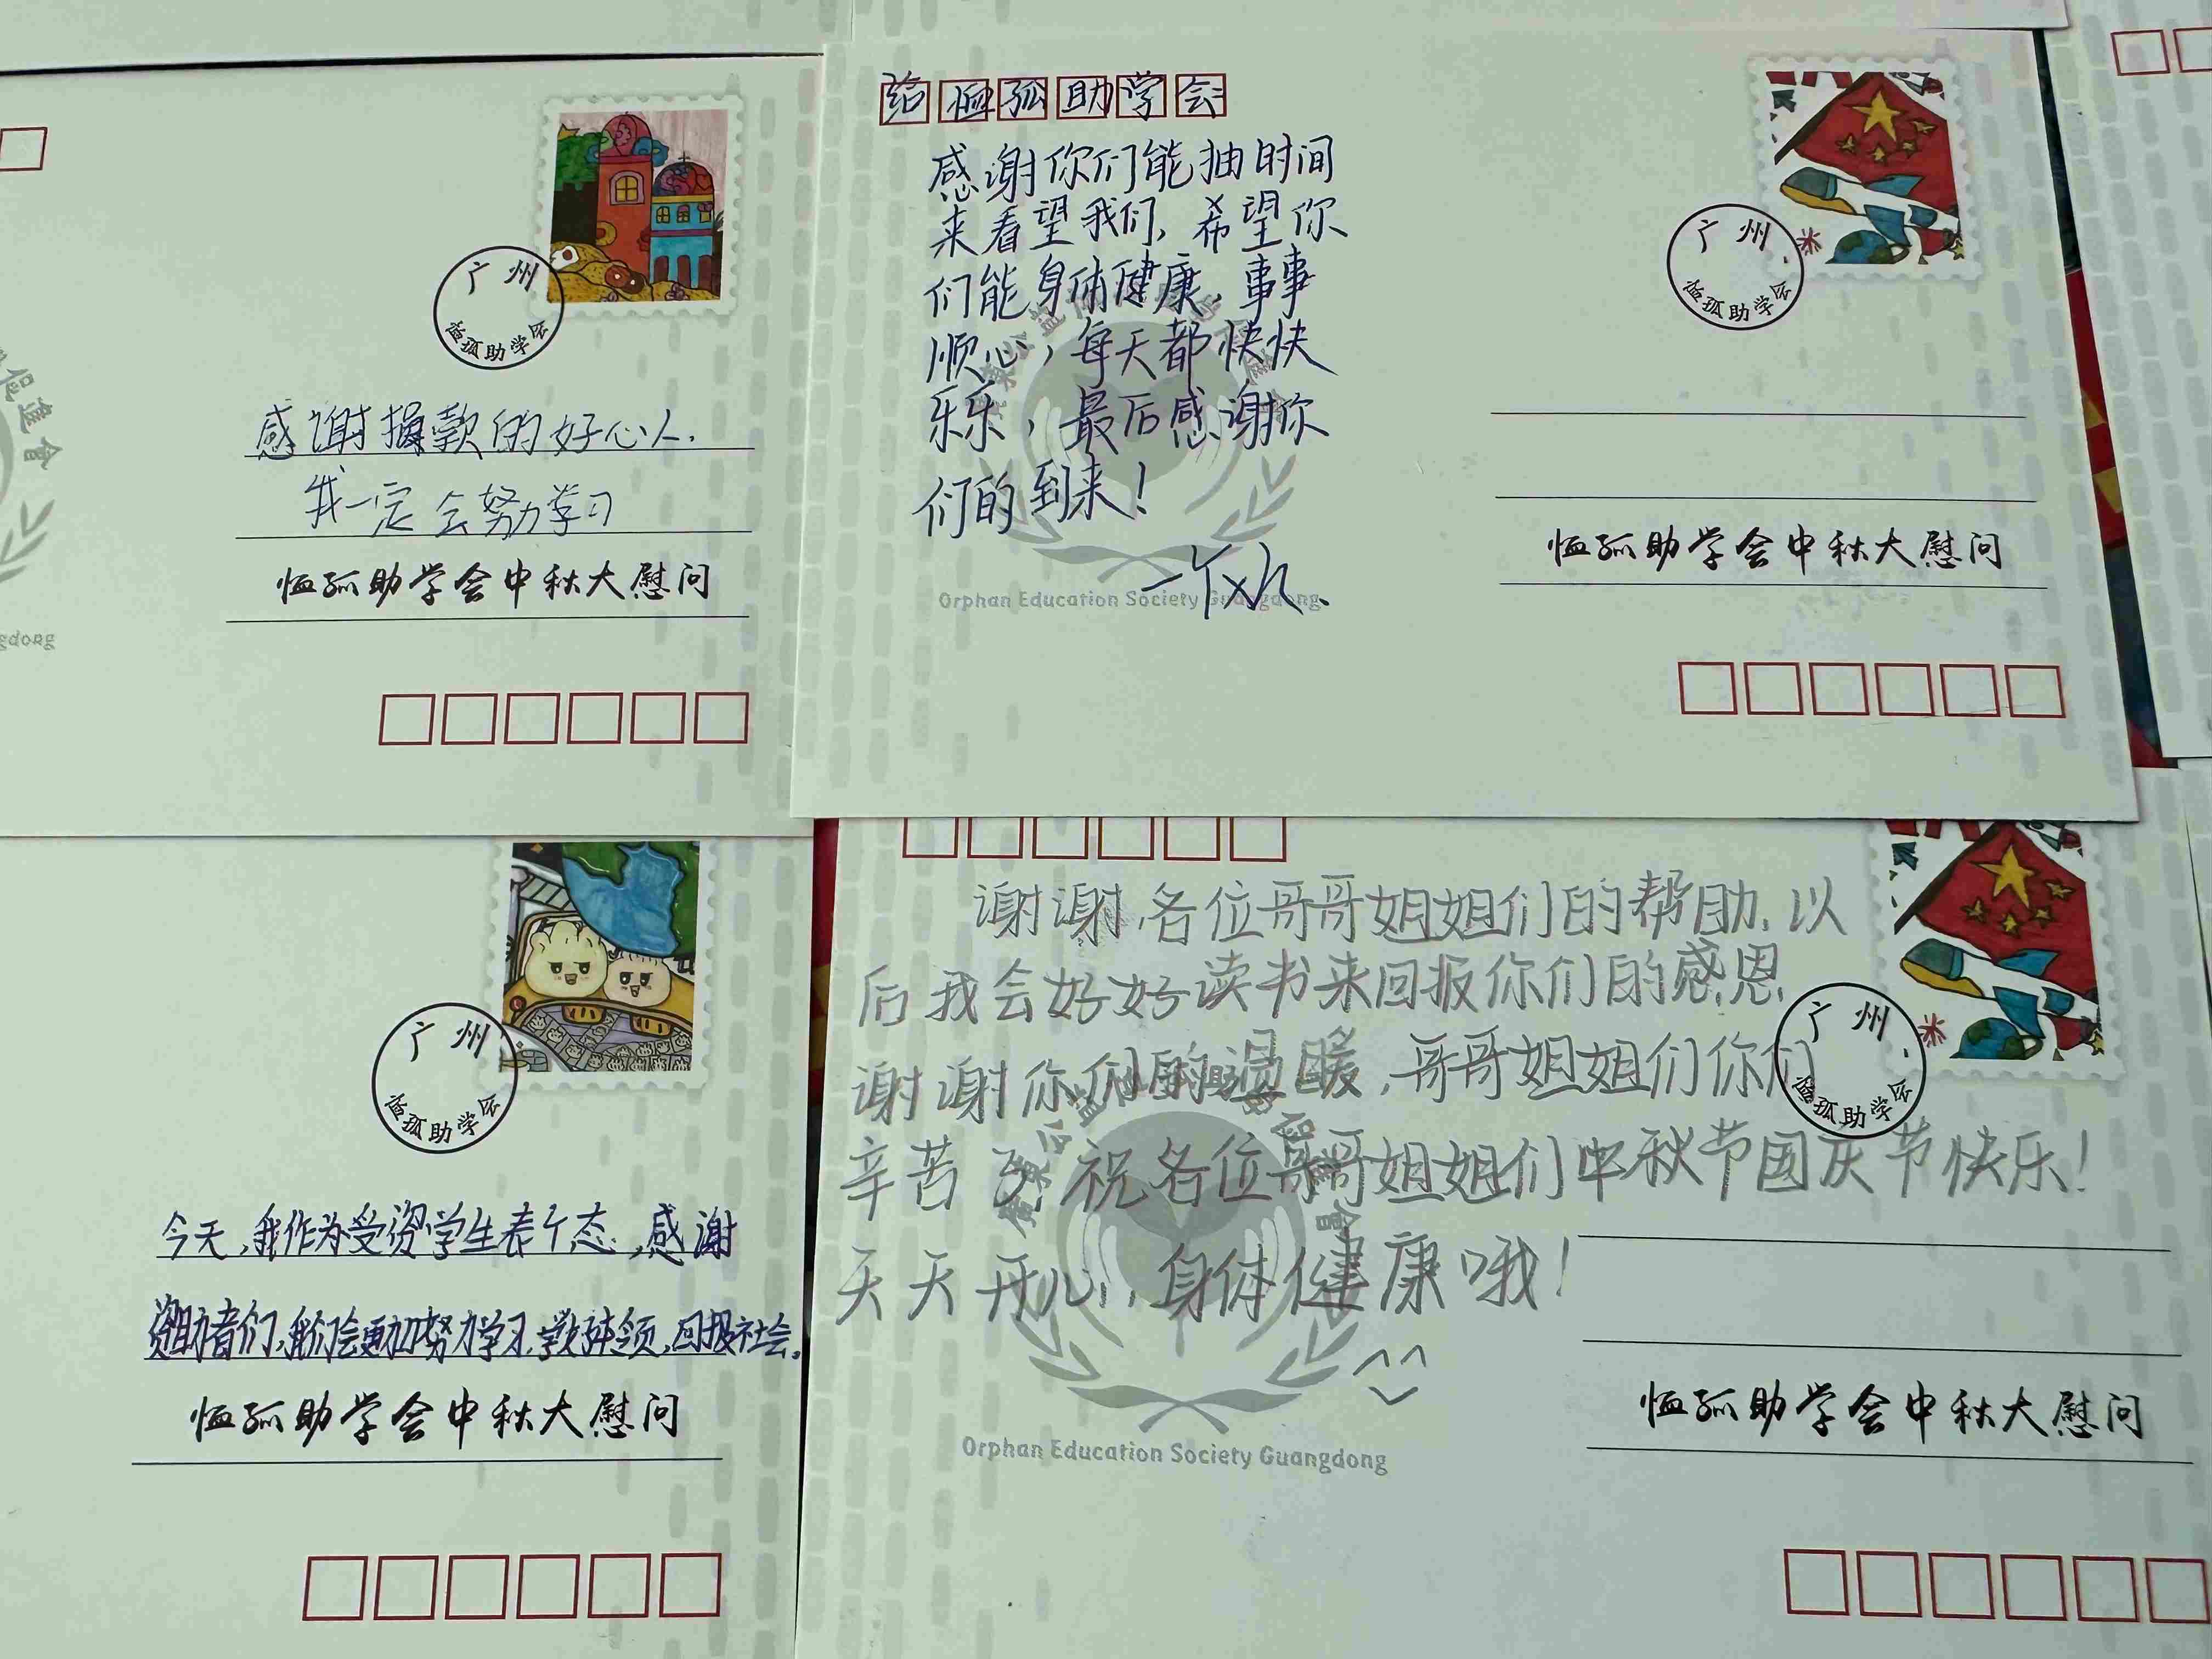 广州
恤孤助学会
感谢捐款的好心人.
我一定会努力学习
恤孤助学会中秋大慰问
gdong
给恤孤助学会
感谢你们能抽时间
来看望我们, 希望你
们能身体健康, 事事
顺心, 每天都快快
乐乐, 最后感谢你
们的到来!
Orphan Education Society Guangdong
广州
恤孤助学会
恤孤助学会中秋大慰问
广州
恤孤助学会
今天,我作为受资学生表个态,感谢
资助者们,我们会更加努力学习,学本领,回报社会。
恤孤助学会中秋大慰问
谢谢各位哥哥姐姐们的帮助, 以
后我会好好读书来回报你们的感恩
谢谢你们的温暖,哥哥姐姐们你们
辛苦了 祝各位哥哥姐姐们中秋节国庆节快乐!
天天开心, 身体健康哦!
广州
恤孤助学会
Orphan Education Society Guangdong
恤孤助学会中秋大慰问